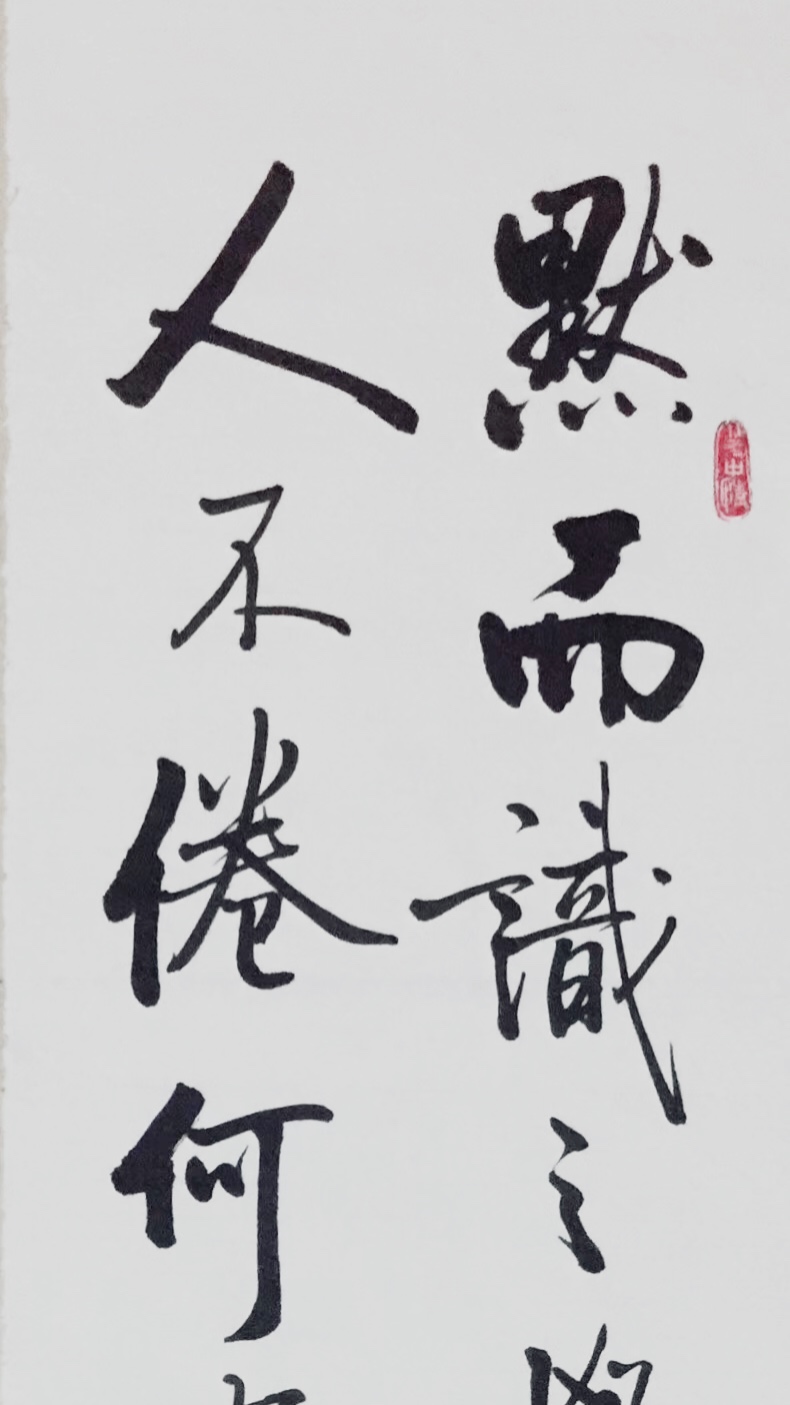 默而識之
人不倦何